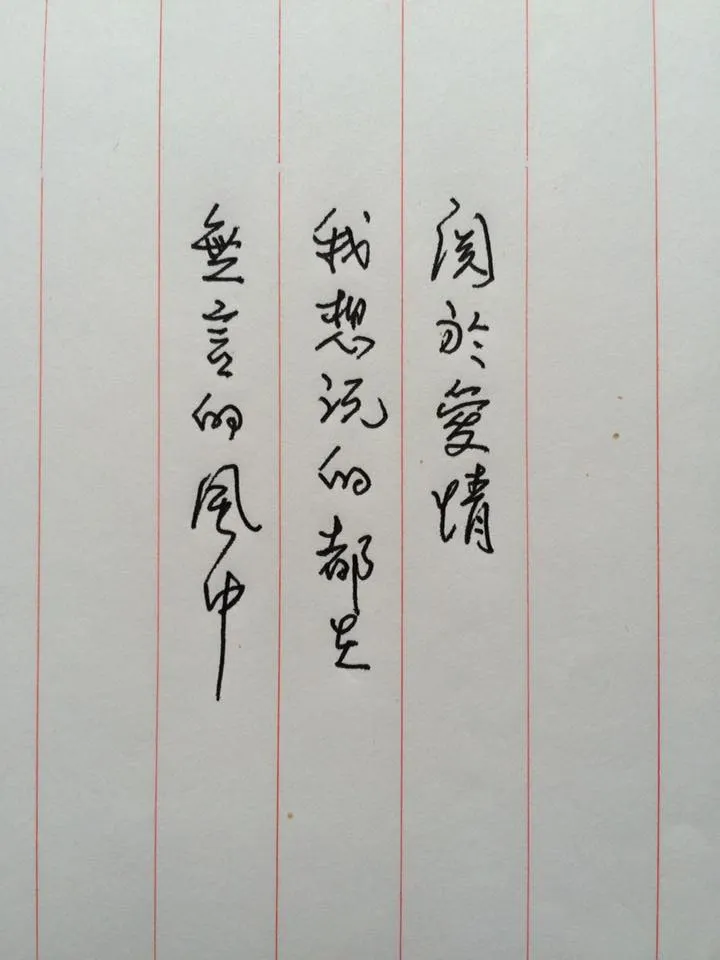 關於愛情
我想说的都在
無言的風中